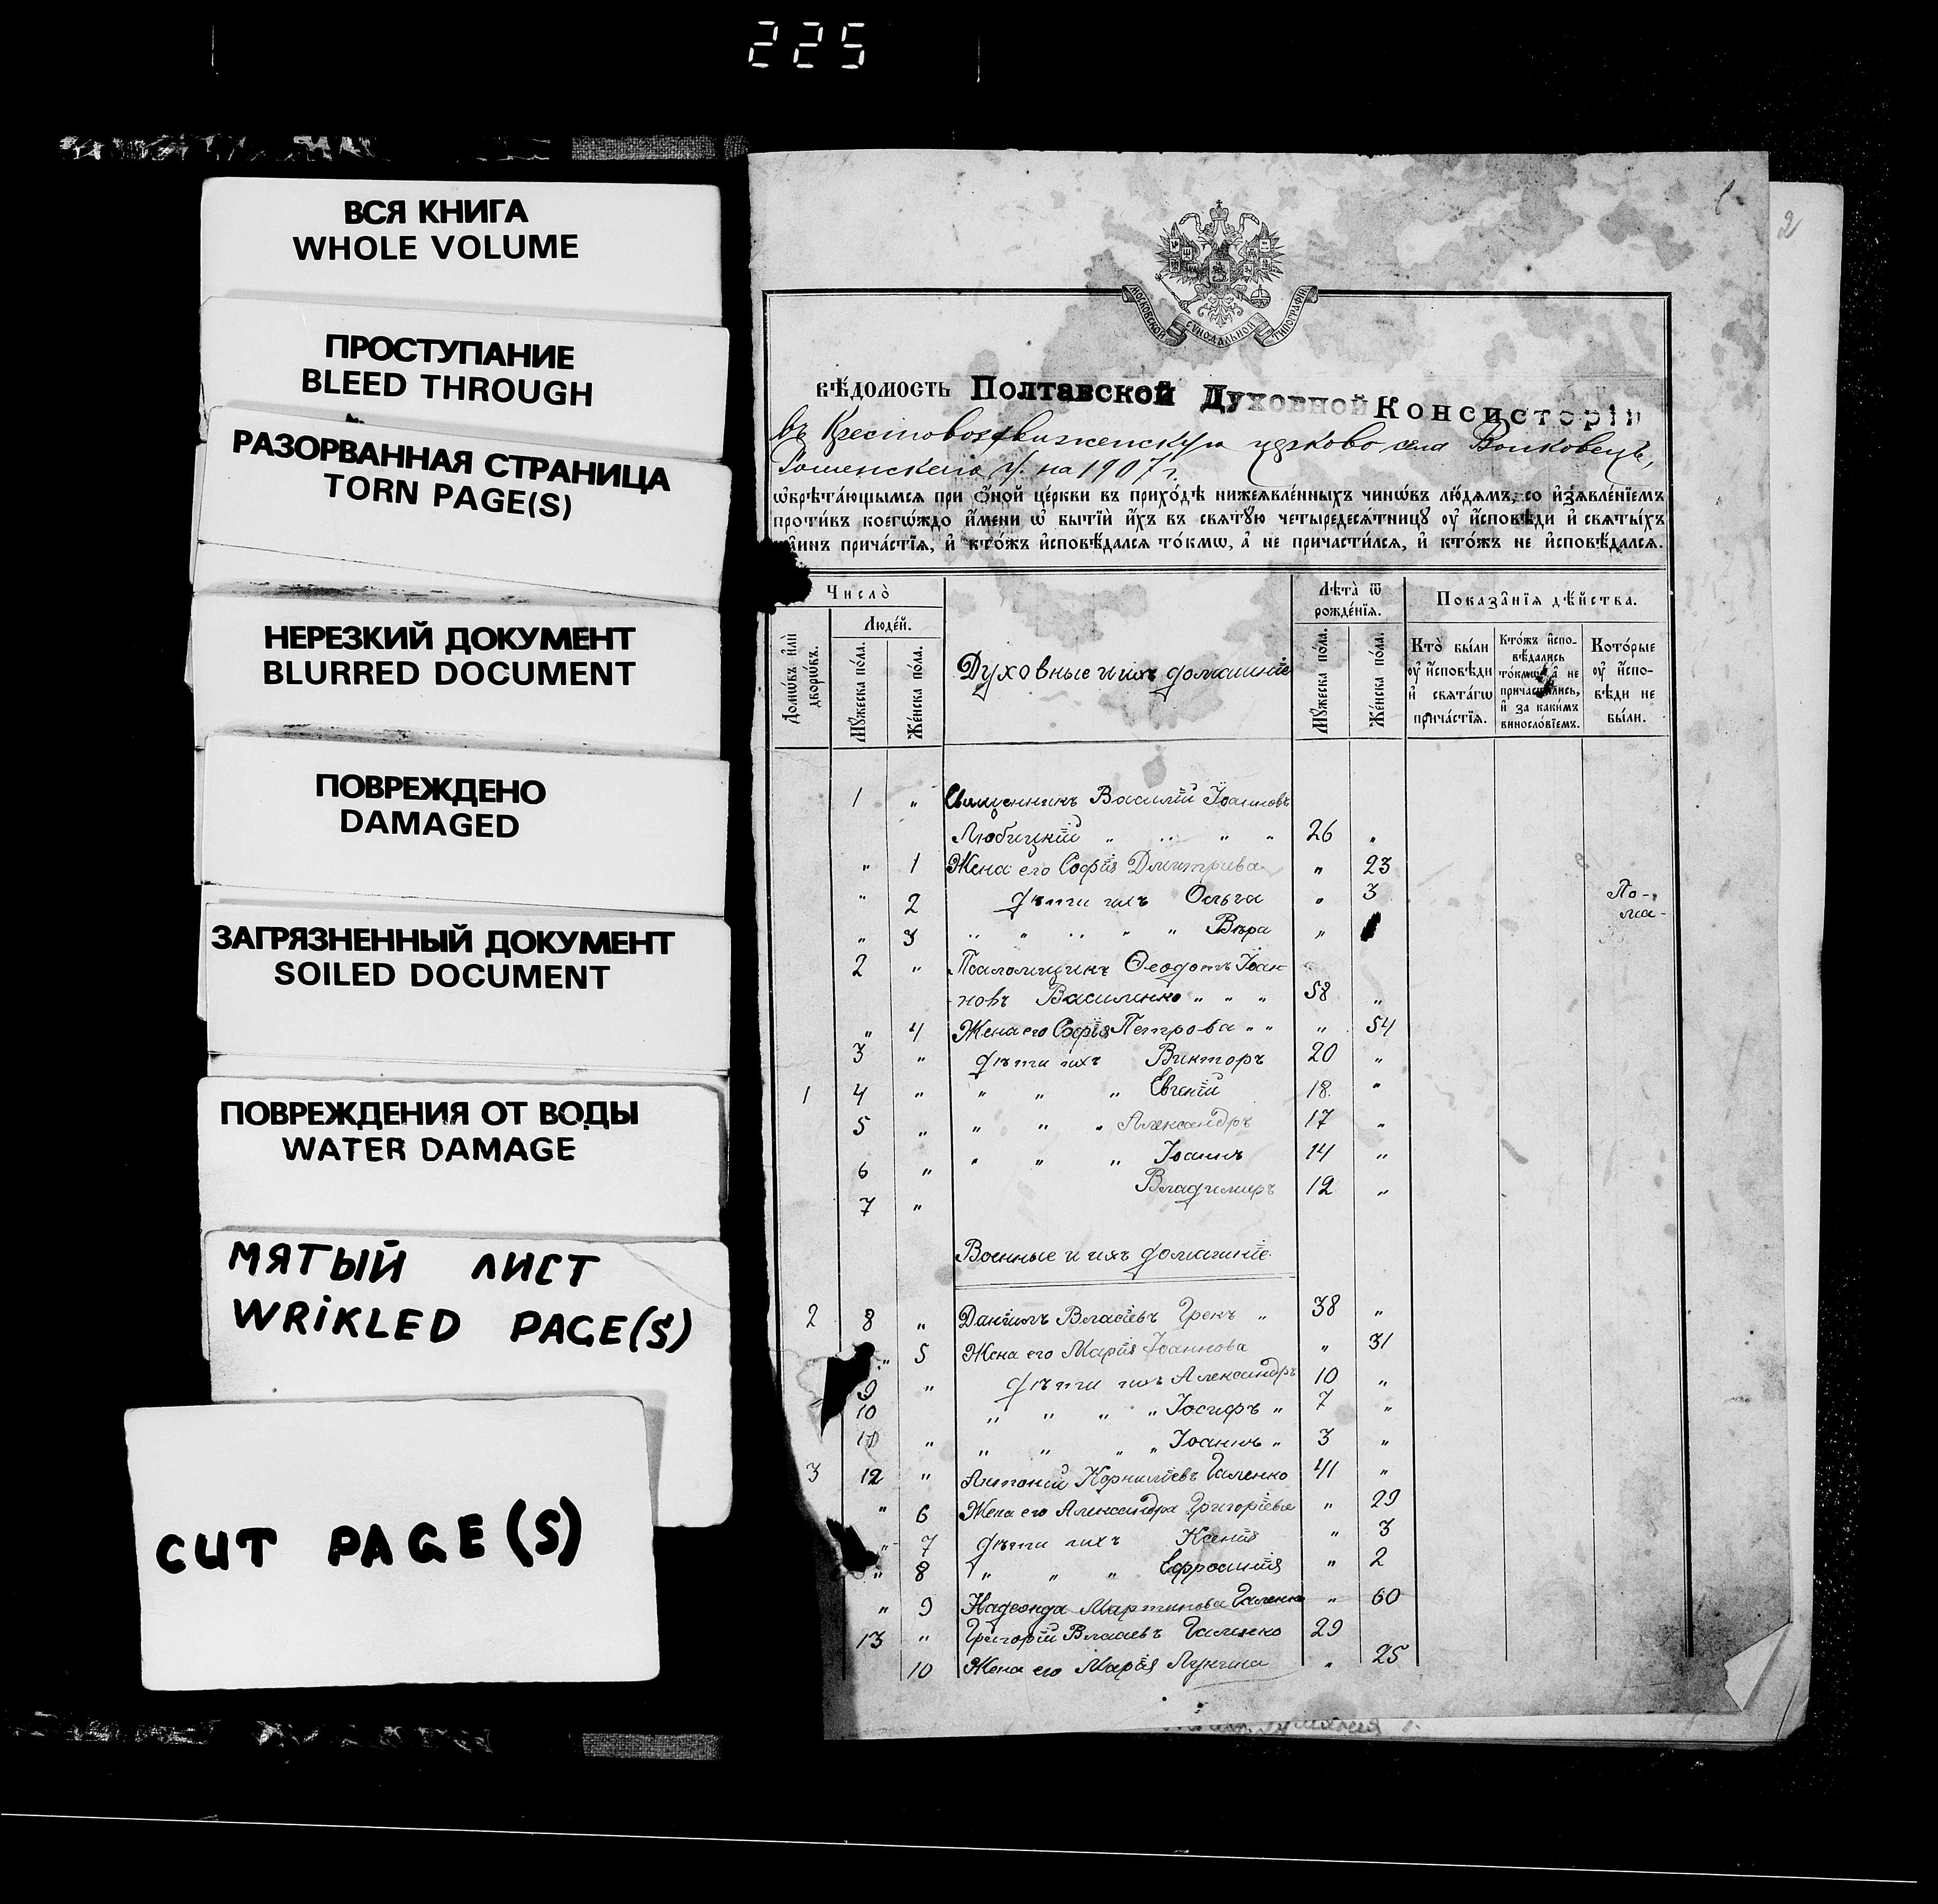 225
ВСЯ КНИГА
WHOLE VOLUME
ПРОСТУПАНИЕ
BLEED THROUGH
РАЗОРВАННАЯ СТРАНИЦА
TORN PAGE(S)
НЕРЕЗКИЙ ДОКУМЕНТ
BLURRED DOCUMENT
ПОВРЕЖДЕНО
DAMAGED
ЗАГРЯЗНЕННЫЙ ДОКУМЕНТ
SOILED DOCUMENT
ПОВРЕЖДЕНИЯ ОТ ВОДЫ
WATER DAMAGE
МЯТЫЙ ЛИСТ
WRIKLED PAGE(S)
CUT PAGE(S)
2
МОСКОВСКОЙ СѴНОДАЛЬНОЙ ТИПОГРАФІИ
вѣ́домость Полтавской Духовной Консисторіи
въ Крестовоздвиженскую церковь села Волковецъ,
Роменскаго у. на 1907 г.
ѡ҆брѣта́ющымся при ѻ҆́ной це́ркви въ прихо́дѣ нижеѧвле́нныхъ чинѡ́въ лю́демъ, со и҆з̾ѧвле́нїемъ
проти́въ коегѡ́ждо и҆́мени ѡ҆ бытїѝ и҆́хъ въ свѧту́ю четыредесѧ́тницу ᲂу҆ и҆́сповѣди и҆ свѧты́хъ
та̑инъ прича́стїѧ, и҆ кто́жъ и҆сповѣ́дался то́кмѡ, а҆ не причасти́лся, и҆ кто́жъ не и҆сповѣ́дался.
Число̀
Люде́й.
Домѡ́въ и҆лѝ дворѡ́въ.
Му́жеска по́ла.
Же́нска по́ла.
Духовные и ихъ домашніе
Лѣ́та ѿ рожде́нїѧ.
Му́жеска по́ла.
Же́нска по́ла.
Показа̑нїѧ дѣ́йства.
Кто̀ бы́ли ᲂу҆ и҆́сповѣди и҆ свѧта́гѡ прича́стїѧ.
Кто́жъ и҆спо-вѣ́дались то́кмѡ, а҆ не причасти́лись, и҆ за каки́мъ виносло́вїемъ.
Кото́рые ᲂу҆ и҆́спо-вѣди не бы́ли.
1 „ Священникъ Василій Іоанновъ
Любицкій „ „ „ „ 26 „
„ 1 Жена его Софія Дмитріева „ 23
„ 2 дѣти ихъ Ольга „ 3
По-
„ 3 „ „ „ „ „ Вѣра „
2 „ Псаломщикъ Ѳеодотъ Іоан-
новъ Василенко „ „ „ 58 „
„ 4 Жена его Софія Петрова „ „ „ 54
3 „ дѣти ихъ Викторъ 20 „
1 4 „ „ „ „ Евгеній 18 „
5 „ „ „ „ Александръ 17 „
6 „ „ „ „ Іоаннъ 14 „
7 „ Владимиръ 12 „
Военные и ихъ домашніе
2 8 „ Даніилъ Власіевъ Грекъ „ 38 „
„ 5 Жена его Марія Іоаннова „ 31
9 „ дѣти ихъ Александръ 10 „
10 „ „ „ „ Іосифъ „ 7 „
11 „ „ „ „ „ Іоаннъ „ 3 „
3 12 „ Антоній Корниліевъ Галенко 41 „
„ 6 Жена его Александра Григоріева „ 29
„ 7 дѣти ихъ Ксенія „ 3
„ 8 „ „ „ Ефросинія „ 2
„ 9 Надежда Мартинова Галенко „ 60
13 „ Григорій Власіевъ Галенко 29
10 Жена его Марія Лукина „ 25